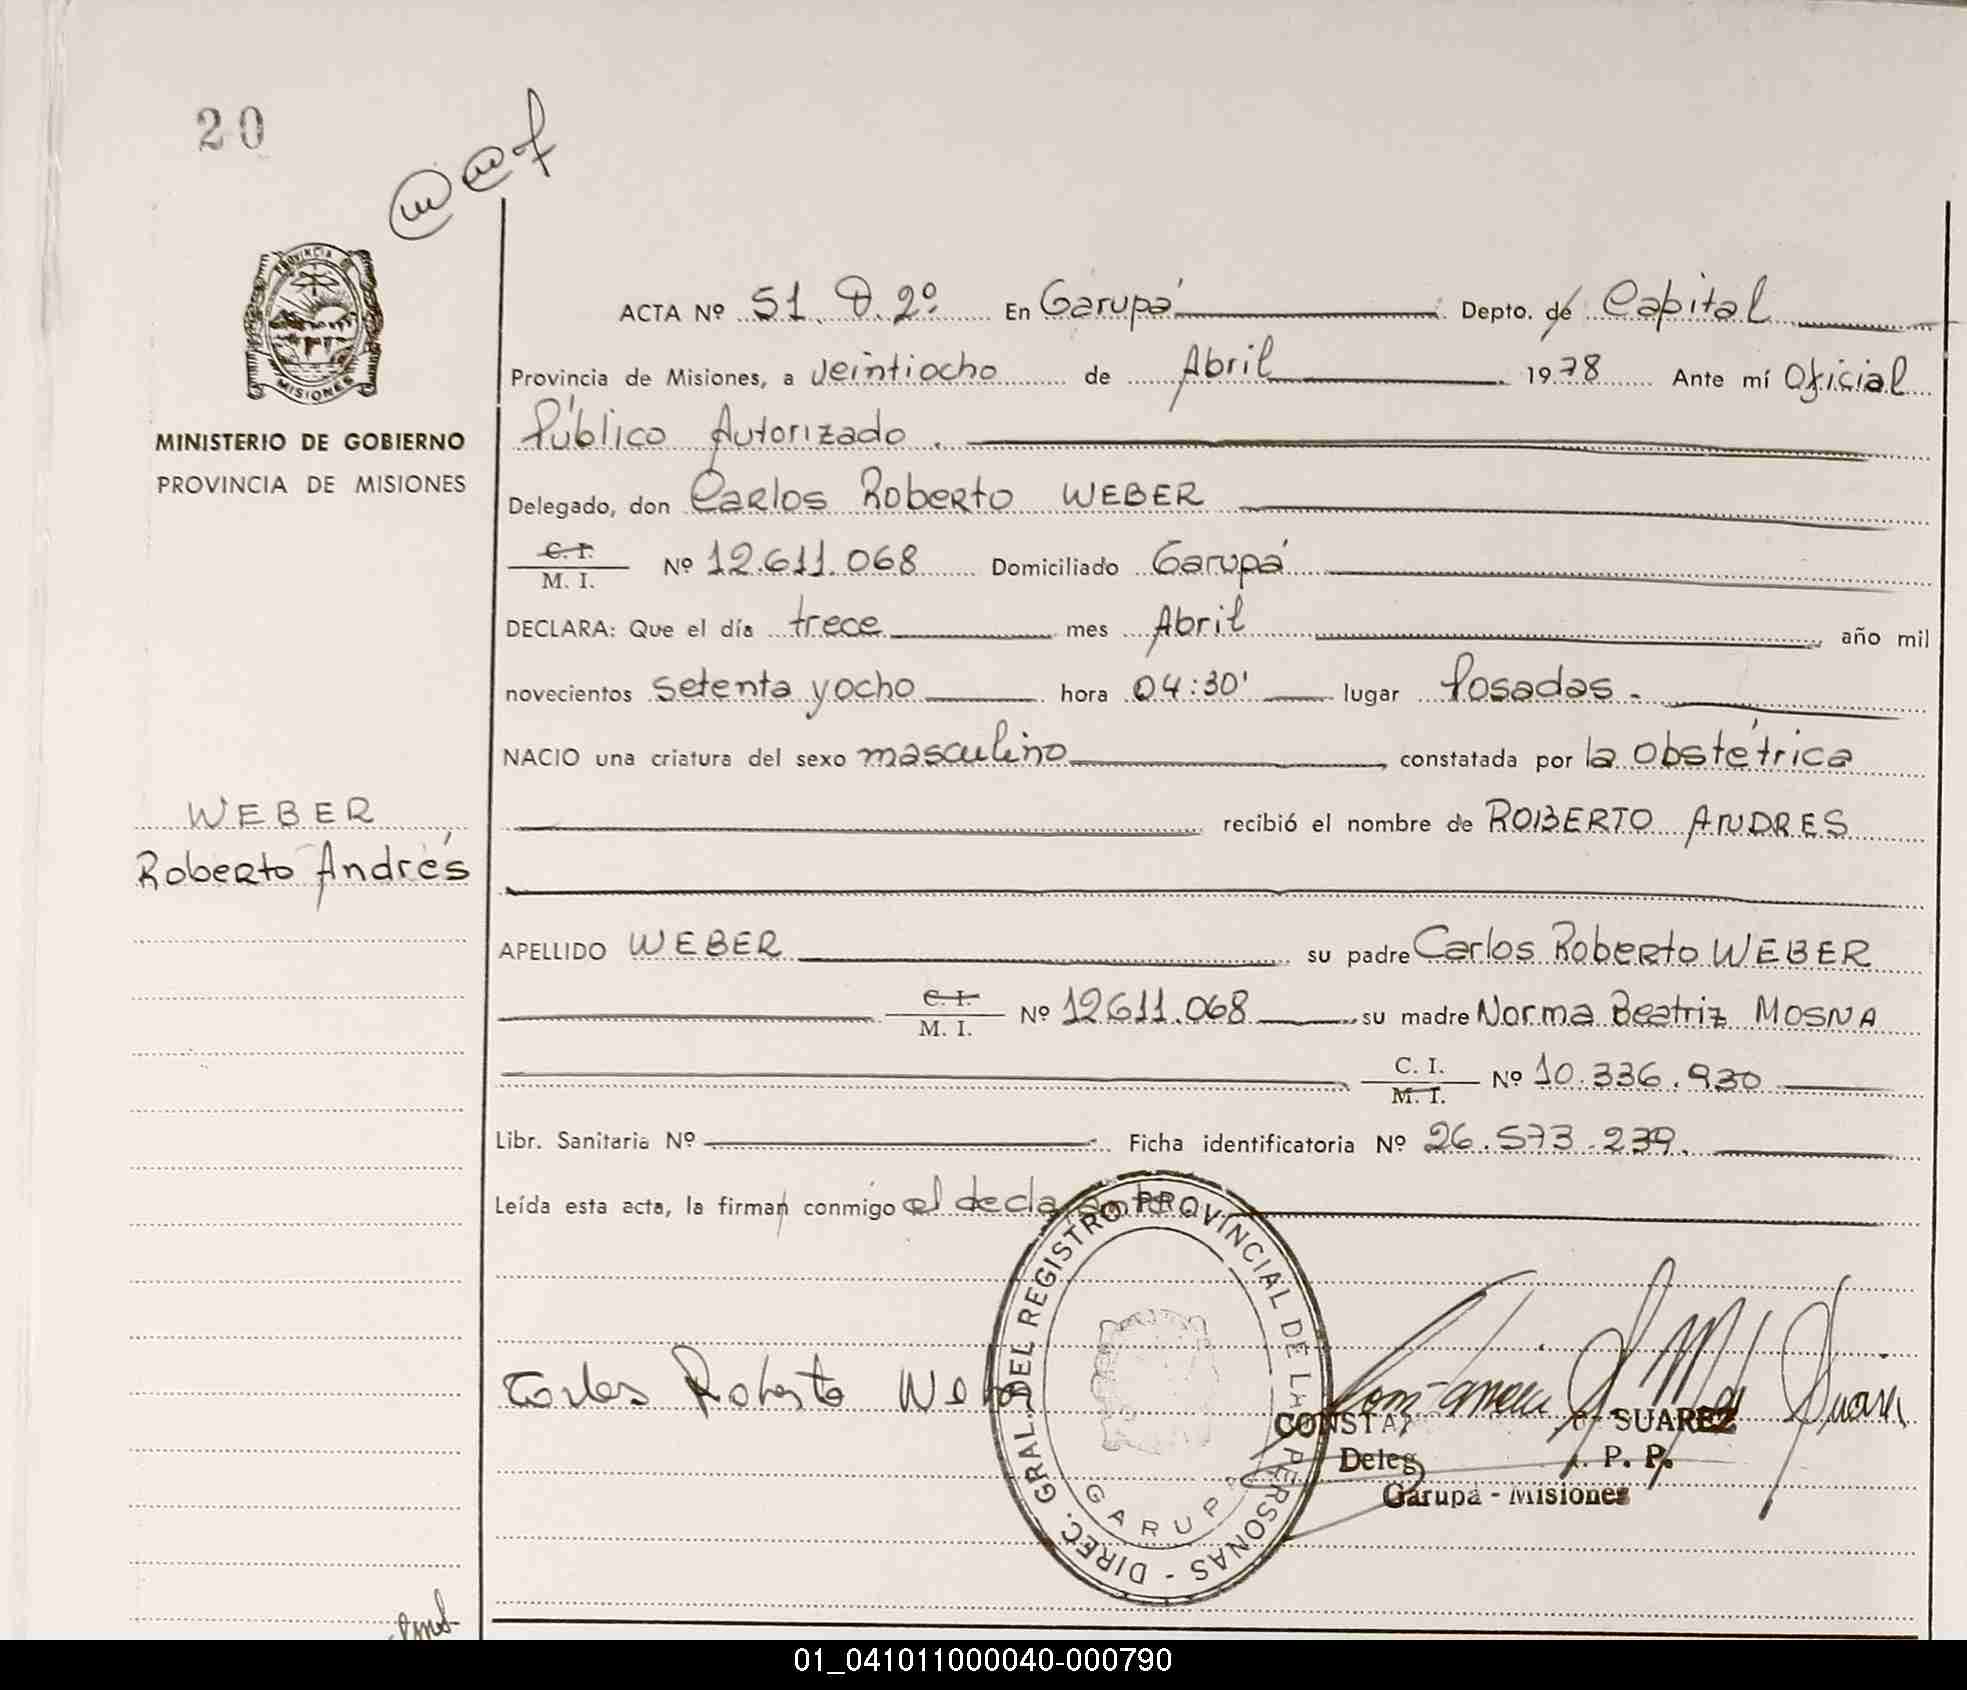 20
PROVINCIA DE
MISIONES
MINISTERIO DE GOBIERNO
PROVINCIA DE MISIONES
WEBER
Roberto Andrés
ACTA Nº 51. D.2º. En Garupá Depto. de Capital
Provincia de Misiones, a veintiocho de Abril 1978 Ante mí Oficial
Público Autorizado.
Delegado, don Carlos Roberto WEBER
C. I.
M. I. Nº 12.611.068 Domiciliado Garupá
DECLARA: Que el día trece mes Abril, año mil
novecientos setenta y ocho hora 04:30' lugar Posadas.
NACIO una criatura del sexo masculino, constatada por la obstétrica
recibió el nombre de ROBERTO ANDRES
APELLIDO WEBER su padre Carlos Roberto WEBER
C. I.
M. I. Nº 12.611.068, su madre Norma Beatriz MOSNA
C. I.
M. I. Nº 10.336.930
Libr. Sanitaria Nº Ficha identificatoria Nº 26.573.239.
Leída esta acta, la firman conmigo el declarante
DIREC. GRAL. DEL REGISTRO PROVINCIAL DE LAS PERSONAS -
GARUPA
Carlos Roberto Weber
SUAREZ
P. P.
Garupá - Misiones
01_041011000040-000790